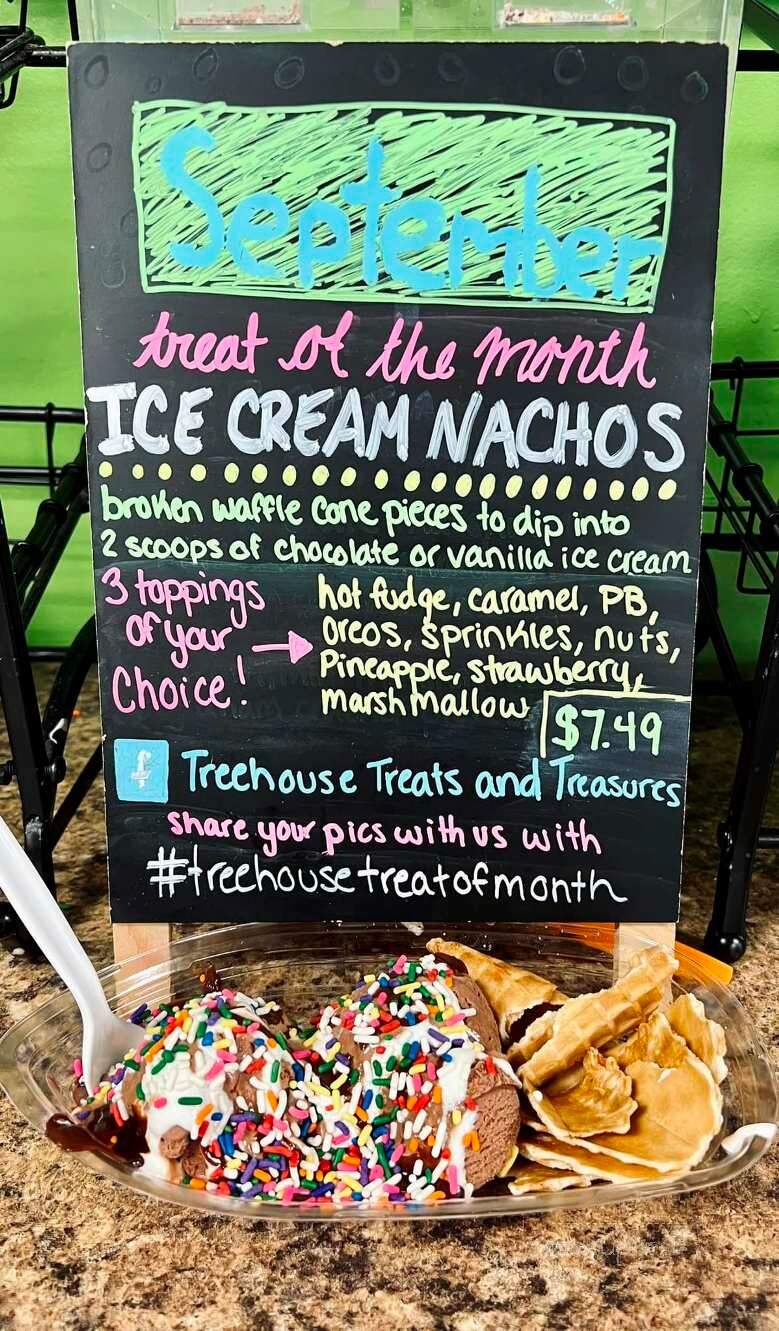 September
treat of the month
ICE CREAM NACHOS
broken waffle cone pieces to dip into
2 scoops of chocolate or vanilla ice cream
3 toppings
of your
Choice!
hot fudge, caramel, PB,
Oreos, sprinkles, nuts,
Pineapple, strawberry,
marshmallow
$7.49
f Treehouse Treats and Treasures
share your pics with us with
#treehousetreatofmonth